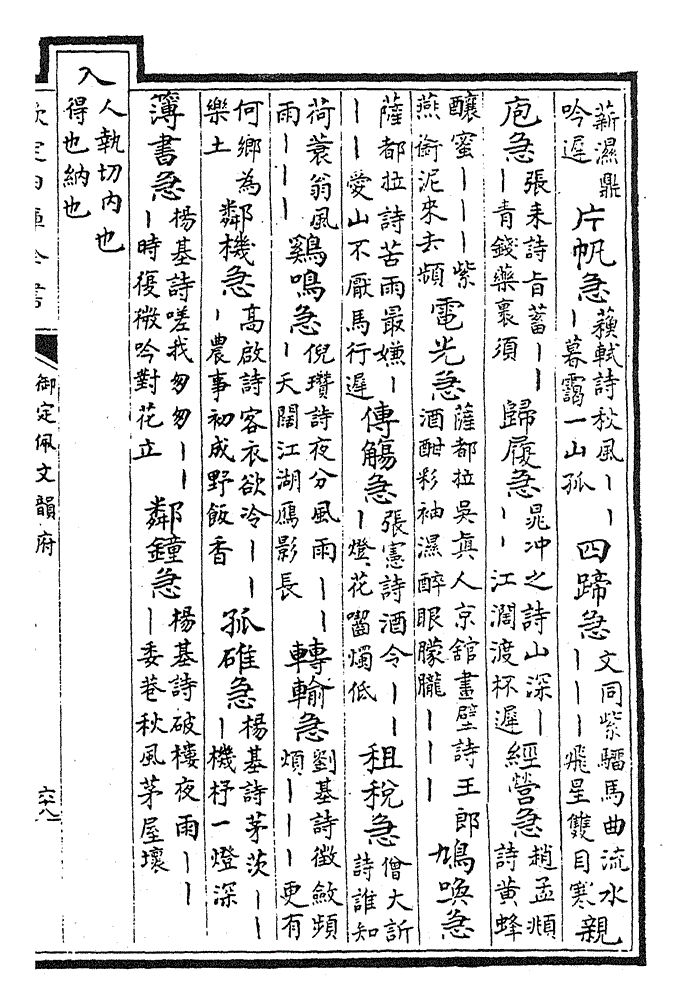 薪濕鼎吟遲片帆急蘓軾詩秋風丨丨丨暮靄一山孤四蹄急文同紫騮馬曲流水丨丨丨飛星雙目寒親
庖急張耒詩旨蓄丨丨丨青錢藥裹須歸履急晁冲之詩山深丨丨丨江濶渡杯遲經營急趙孟頫詩黃蜂
釀蜜丨丨丨紫燕銜泥來去頻電光急薩都拉吳真人京舘畫壁詩王郎酒酣彩袖濕醉眼朦朧丨丨丨鳩喚急
薩都拉詩苦雨最嫌丨丨丨愛山不厭馬行遲傳觴急張憲詩酒令丨丨丨燈花囓燭低租稅急僧大訢詩誰知
荷蓑翁風雨丨丨丨鷄鳴急倪瓚詩夜分風雨丨丨丨天闊江湖鴈影長轉輸急劉基詩徵斂頻煩丨丨丨更有
何鄉為樂土鄰機急高啟詩客衣欲冷丨丨丨農事初成野飯香孤碓急楊基詩茅茨丨丨丨機杼一燈深
簿書急楊基詩嗟我匆匆丨丨丨時復微吟對花立鄰鐘急楊基詩破樓夜雨丨丨丨委巷秋風茅屋壞
入人執切内也得也納也
欽定四庫全書 御定佩文韻府 六十八